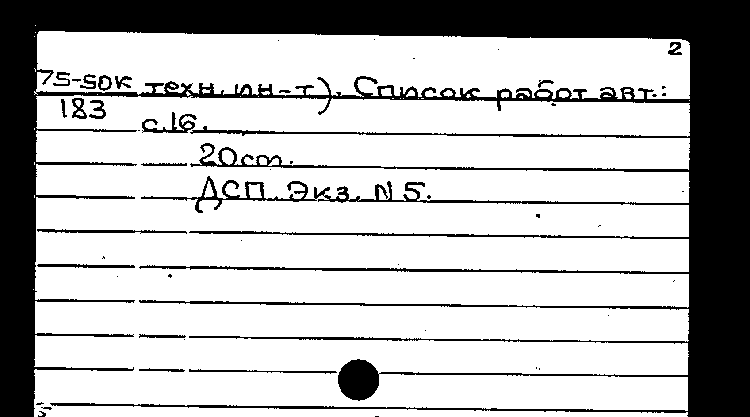 2
75-50к техн. ин-т). Список работ авт.:
183 с.16.
20см.
ДСП. Экз. N 5.